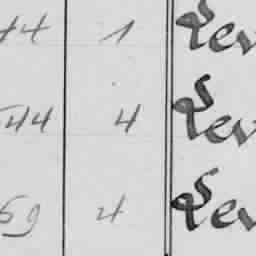 44 1 Lev
544 4 Lev
59 4 Lev